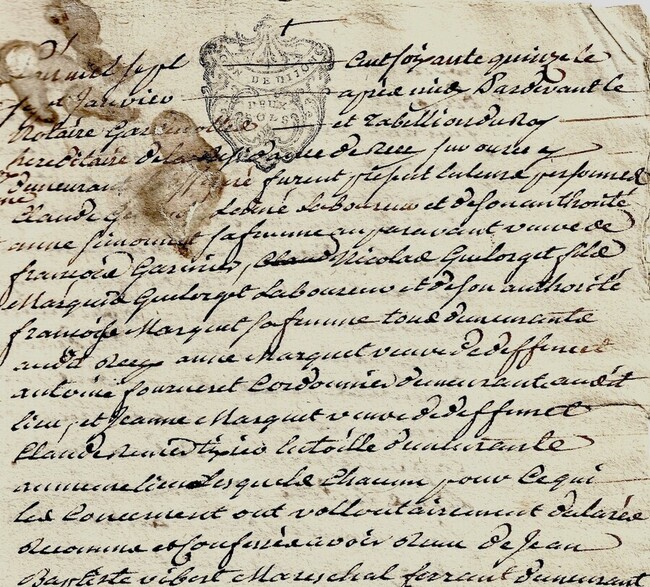 L'an mil sept cent soixante quinze le
Janvier après midy Pardevant le
Notaire et Tabellion du Roy
hereditaire de la residance de Recey sur ource
DION DE DIJON
DEUX SOLS
demeurant furent présent en leurs personnes
Claude Laboureur et de son authorité
anne Simonnet sa femme auparavant veuve de
françois Garnier, Nicolas Guilorget fils de
Marguerite Guilorget Laboureur et de son authorité
françoise Marguet sa femme tous demeurants
audit Recey anne Marguet veuve de deffunct
antoine fourneret Cordonnier demeurant audit
lieu, et Jeanne Marguet veuve de deffunct
Claude en toille demeurante
au meme lieu Lesquels Chacun pour Ce qui
les Concernent ont vollontairement déclarés
Reconnu et Confessé avoir Receu de Jean
Baptiste vibert Mareschal ferrant demeurant